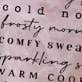 cold no
frosty morn
COMFY SWEA
sparkling
WARM CO